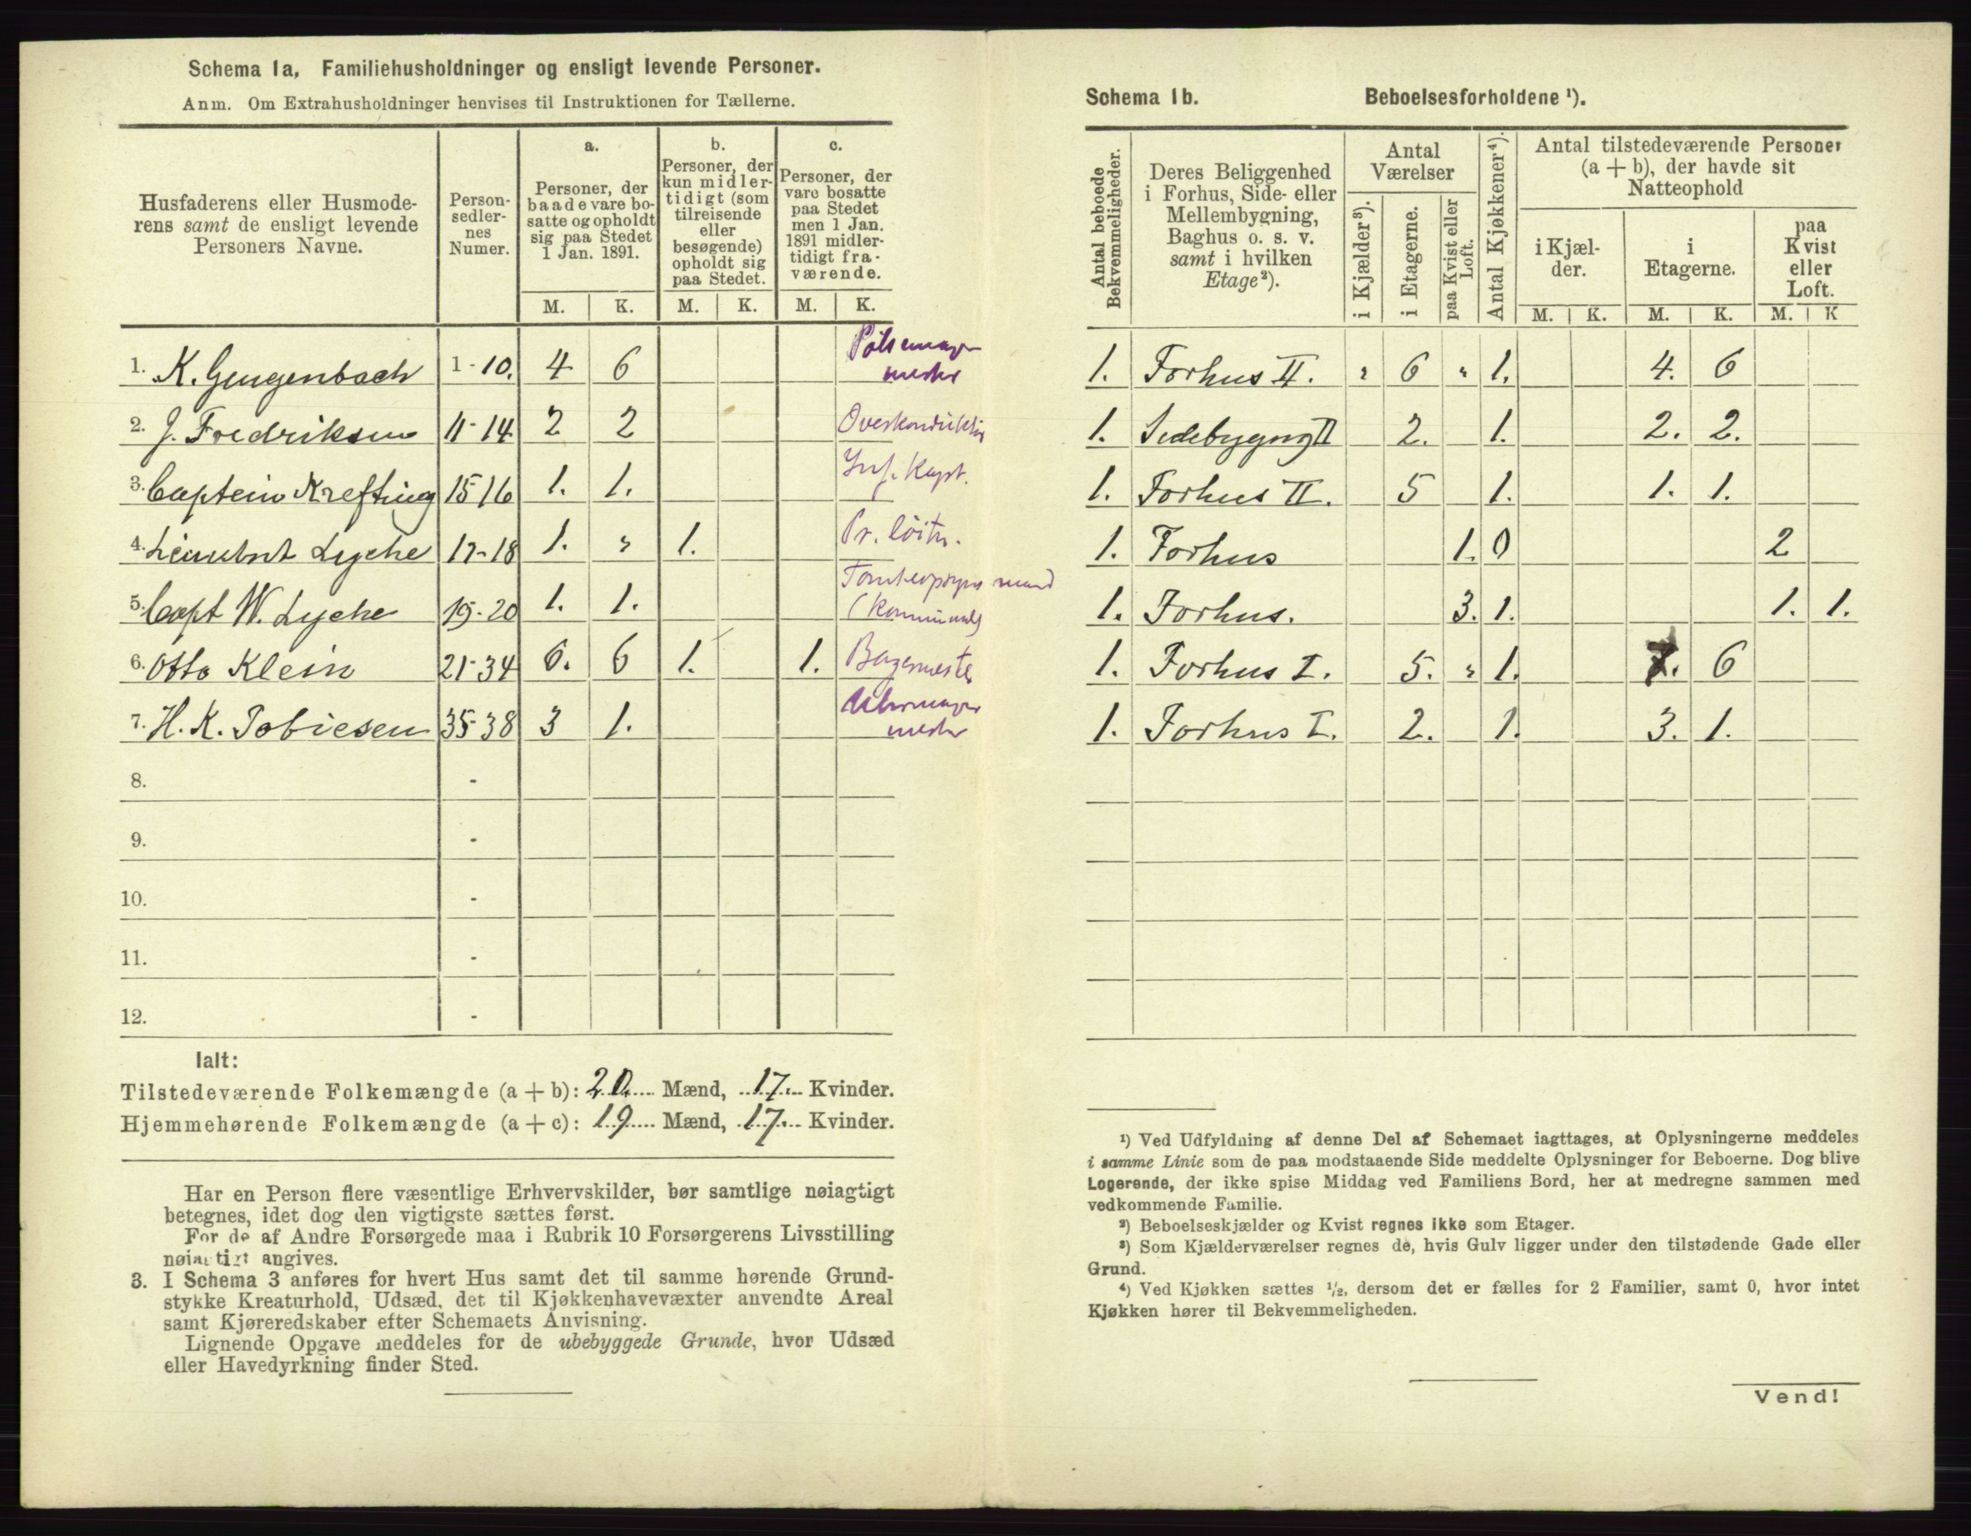 Schema 1a, Familiehusholdninger og ensligt levende Personer.
Anm. Om Extrahusholdninger henvises til Instruktionen for Tællerne.
Husfaderens eller Husmode-
rens samt de ensligt levende
Personers Navne.
Person-
sedler-
nes
Numer.
a.
Personer, der
baade vare bo-
satte og opholdt
sig paa Stedet
1 Jan. 1891.
b.
Personer, der
kun midler-
tidigt (som
tilreisende
eller
besøgende)
opholdt sig
paa Stedet.
c.
Personer, der
vare bosatte
paa Stedet
men 1 Jan.
1891 midler-
tidigt fra-
værende.
M. K. M. K. M. K.
1. K. Gengenbach 1-10. 4 6 Pølsemager
mester
2. J. Fredriksen 11-14 2 2 Overkonduktør
3. Captein Krefting 15-16 1. 1. Inf. Kapt.
4. Lieutnt Lyche 17-18 1. " 1. Pr. löitn.
5. Capt W. Lyche 19-20 1. 1. Tomteopsynsmand
(Kommunal)
6. Otto Klein 21-34 6. 6 1. 1. Bagermester
7. H. K. Tobiesen 35-38 3 1. Uhrmager
mester
8. -
9. -
10. -
11. -
12. -
Ialt:
Tilstedeværende Folkemængde (a + b): 20 Mænd, 17 Kvinder.
Hjemmehørende Folkemængde (a + c): 19 Mænd, 17 Kvinder.
Har en Person flere væsentlige Erhvervskilder, bør samtlige nøiagtigt
betegnes, idet dog den vigtigste sættes først.
For de af Andre Forsørgede maa i Rubrik 10 Forsørgerens Livsstilling
nøiagtigt angives.
3. I Schema 3 anføres for hvert Hus samt det til samme hørende Grund-
stykke Kreaturhold, Udsæd, det til Kjøkkenhavevæxter anvendte Areal
samt Kjøreredskaber efter Schemaets Anvisning.
Lignende Opgave meddeles for de ubebyggede Grunde, hvor Udsæd
eller Havedyrkning finder Sted.
Schema 1b. Beboelsesforholdene ¹).
Antal beboede
Bekvemmeligheder.
Deres Beliggenhed
i Forhus, Side- eller
Mellembygning,
Baghus o. s. v.
samt i hvilken
Etage²).
Antal
Værelser
i Kjælder³).
i Etagerne.
paa Kvist eller
Loft.
Antal Kjøkkener⁴).
Antal tilstedeværende Personer
(a + b), der havde sit
Natteophold
i Kjæl-
der.
i
Etagerne.
paa
Kvist
eller
Loft.
M. K. M. K. M. K
1. Forhus II. " 6 " 1. 4. 6
1. Sidebygng II 2. 1. 2. 2.
1. Forhus II. 5 1. 1. 1.
1. Forhus 1. 0 2
1. Forhus. 3. 1. 1. 1.
1. Forhus I. 5. " 1. 7. 6
1. Forhus I. 2. 1. 3. 1.
¹) Ved Udfyldning af denne Del af Schemaet iagttages, at Oplysningerne meddeles
i samme Linie som de paa modstaaende Side meddelte Oplysninger for Beboerne. Dog blive
Logerende, der ikke spise Middag ved Familiens Bord, her at medregne sammen med
vedkommende Familie.
²) Beboelseskjælder og Kvist regnes ikke som Etager.
³) Som Kjælderværelser regnes de, hvis Gulv ligger under den tilstødende Gade eller
Grund.
⁴) Ved Kjøkken sættes ½, dersom det er fælles for 2 Familier, samt 0, hvor intet
Kjøkken hører til Bekvemmeligheden.
Vend!